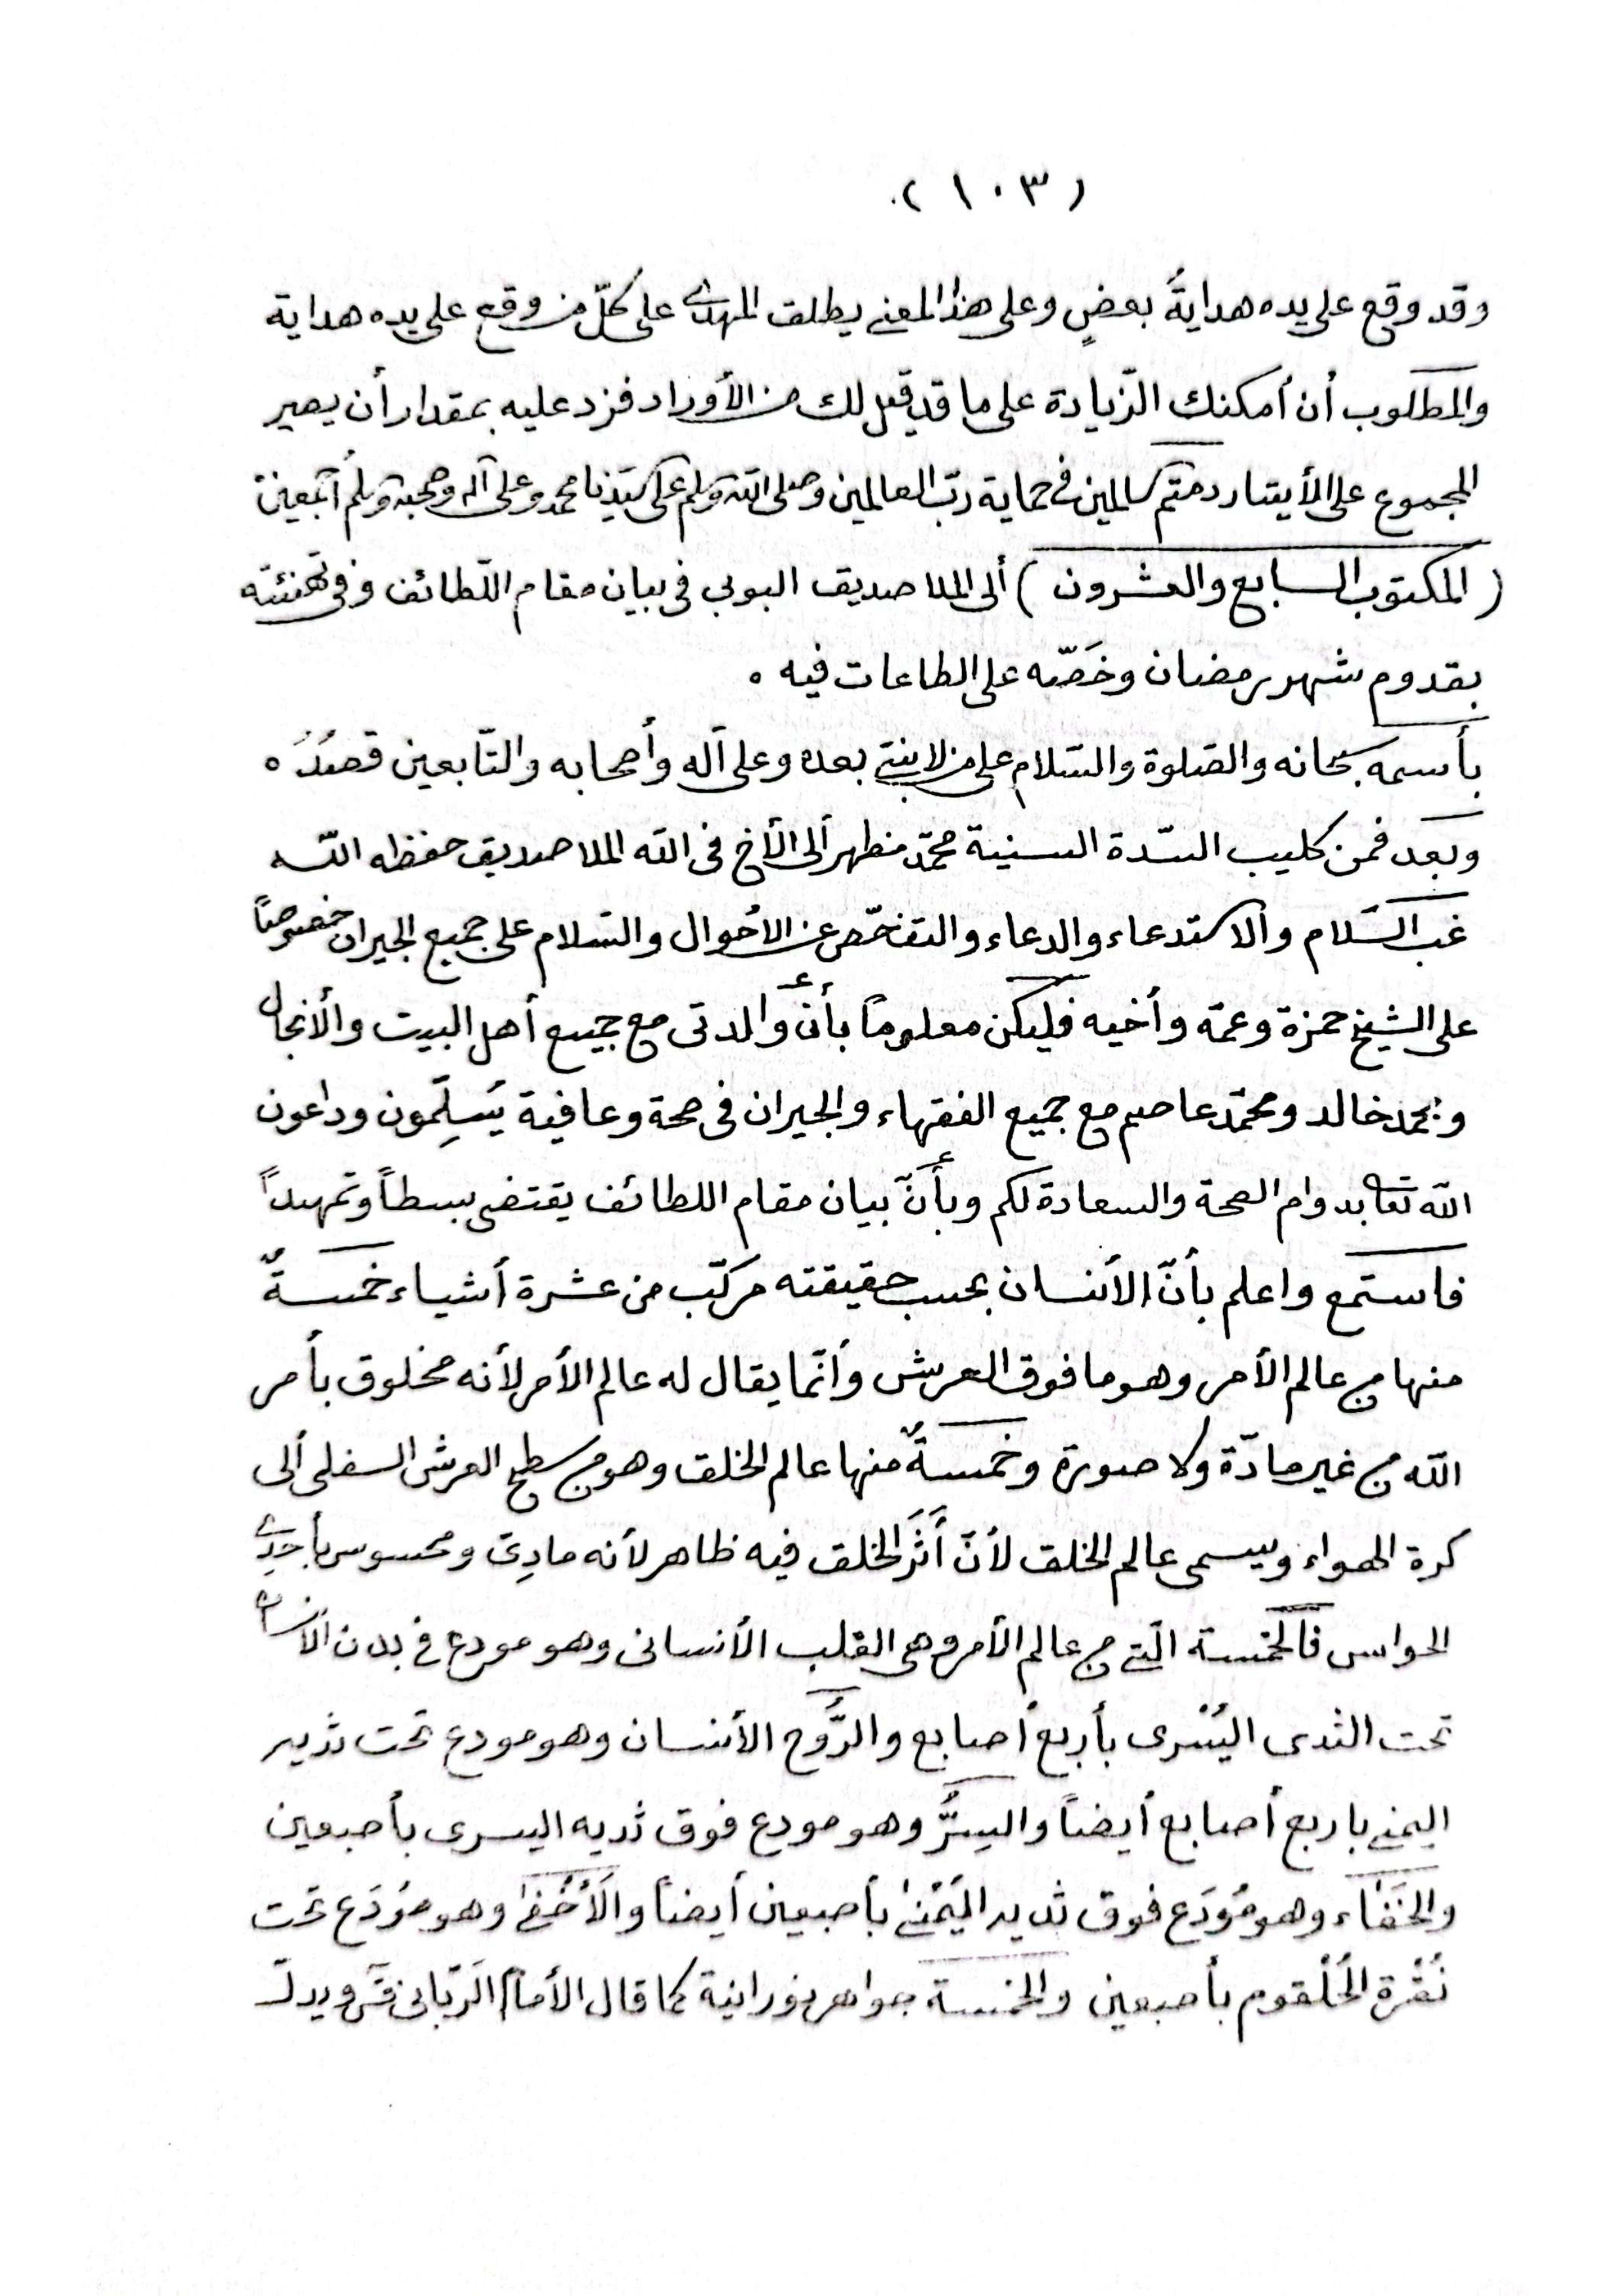 (١٠٣)
وقد وقع على يده هدايةُ بعضٍ وعلى هذا المعنى يطلق المهدى على كلّ من وقع على يده هداية
والمطلوب أن أمكنك الزّيادة على ما قد قيل لك من الأوراد فزد عليه بمقدار أن يصير
المجموع على الأيتار دمتم سالمين فى حماية ربّ العالمين وصلى الله وسلم على سيّدنا محمد وعلى آله وصحبه وسلم أجمعين
(المكتوب السابع والعشرون) ألى الملا صديق البوبى فى بيان مقام اللّطائف وفى تهنئته
بقدوم شهر رمضان وخَصّه على الطاعات فيه ٠
بأسمه سبحانه والصّلوة والسّلام على من لا نبىّ بعده وعلى آله وأصحابه والتّابعين قصدُهُ ٠
وبعد فمن كليب السّدة السنية محمّد مظهر ألى الأخ فى الله الملا صديق حفظه اللّه
غب السّلام والاستدعاء والدعاء والتفحّص عن الأحوال والسّلام على جميع الجيران خصوصاً
على الشيخ حمزة وعمّه وأخيه فليكن معلوماً بأنّ والدتى مع جميع أهل البيت والأنجال
ومحمّد خالد ومحمّد عاصم مع جميع الفقهاء والجيران فى صحة وعافية يُسلِّمون وداعون
اللّه تعا بدوام الصحة والسعادة لكم وبأنّ بيان مقام اللطائف يقتضى بسطاً وتمهيداً
فاستمع واعلم بأنّ الأنسان بحسب حقيقته مركّب من عشرة أشياء خمسةٌ
منها من عالم الأمر وهو ما فوق العرش وأنّما يقال له عالم الأمر لأنه مخلوق بأمر
اللّه من غير مادّة ولا صورة وخمسةٌ منها عالم الخلق وهو من سطح العرش السفلى ألى
كرة الهواء ويسمى عالم الخلق لأنّ أَثَر الخلق فيه ظاهر لأنه مادِىّ ومحسوس بأحدى
الحواس فالخمسة الّتى من عالم الأمر وهى القلب الأنسانى وهو مودع فى بدن الأنسان
تحت الثدى اليُسْرى بأربع أصابع والرُّوح الأنسان وهو مودع تحت ثديه
اليمنى باربع أصابع أيضاً والسِرُّ وهو مودع فوق ثديه اليسرى بأصبعين
والخَفَاء وهو مُودَع فوق ثديه اليَمْنىٰ بأصبعين أيضاً والَأخْفىٰ وهو مُودَع تحت
نُقْرة الحُلْقوم بأصبعين والخمسة جواهر نورانية كما قال الأمام الرّبّانى قس ويدلّ